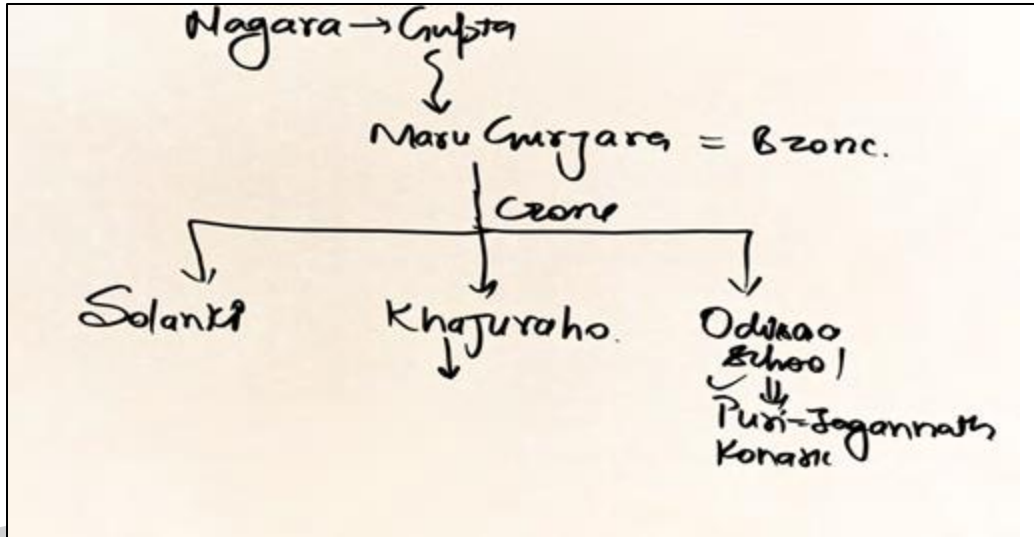 Nagara → Gupta
Maru Gurjara = Bzone.
Czone
Solanki
Khajuraho.
Odisao
School
Puri-Jagannath
Konark